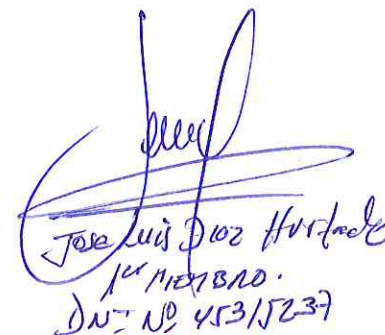 Jose Luis Diaz Hurtado
1er MIEMBRO.
DNI Nº 45315237